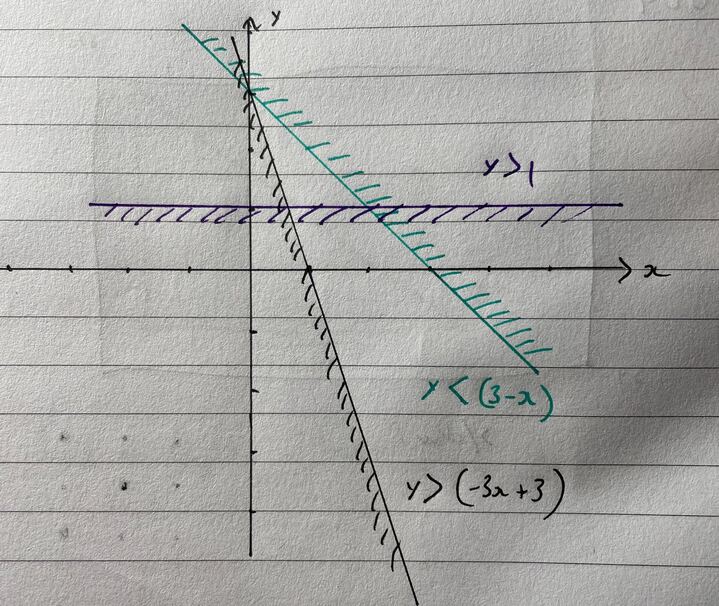 y
y>1
x
y < (3-x)
y > (-3x+3)